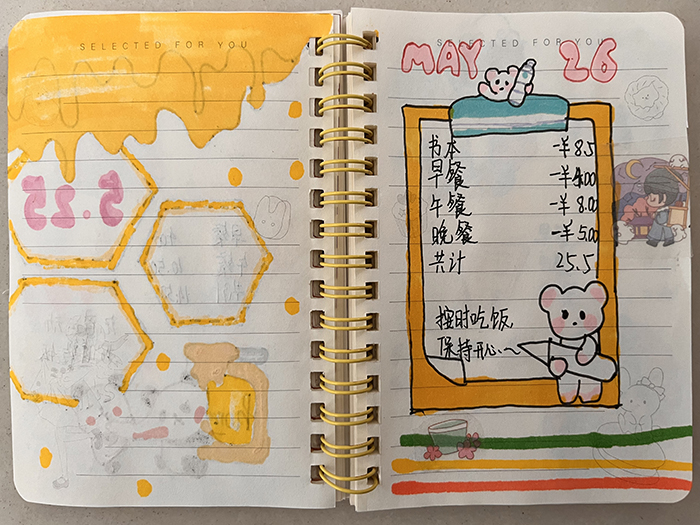 SELECTED FOR YOU
SELECTED FOR YOU
MAY 26
书本 -¥8.5
早餐 -¥4.00
午餐 -¥8.00
晚餐 -¥5.00
共计 25.5
按时吃饭
保持开心~